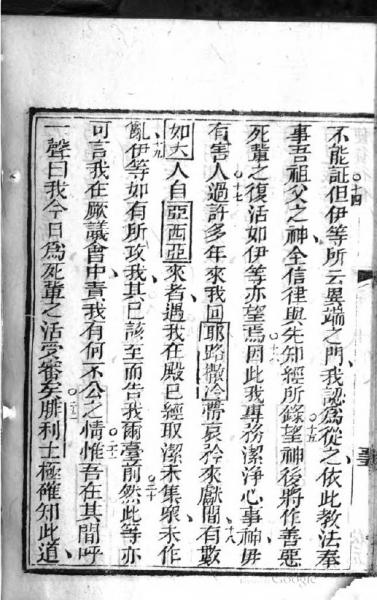 不能証○十四但伊等所云異端之門、我認為從之、依此教法奉
事吾祖父之神、全信律與先知經所錄○十五望神後將作善惡
死輩之復活如伊等亦望焉○十六因此我專務潔淨心事神毋
有害人○十七過許多年來我回耶路撒冷濟哀矜來獻○十八間有數
如大人自亞西亞來者、遇我在殿已經取潔未集眾未作
亂○十九伊等如有所攻我、其已該至而告我爾臺前○二十然此等亦
可言我在厥議會中責我有何不公之情○二一惟吾在其間呼
一聲曰我今日為死輩之活受審矣○二二腓利士極確知此道、
Google